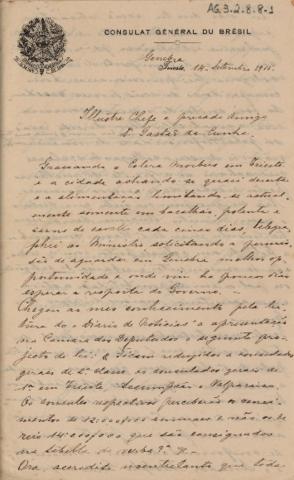 AG.3.2.8.8-1
CONSULAT GÉNÉRAL DU BRÉSIL
Genebra
Suissa, 14, Setembro 1911.
Illustre Chefe e presado Amigo
Dr. Gastão da Cunha.
Grassando o Colera Morbus em Trieste
e a cidade achando-se quasi deserta
e a alimentação limitando-se
mente somente em bacalhau, polenta e
carne de cavallo cada cinco dias, telegra-
phei ao Ministro solicitando a permis-
são de aguardar em Genebra melhor op-
portunidade e onde vim ha poucos dias
esperar a resposta do Governo.
Chegou ao meu conhecimento pela lei-
tura do "Diario de Noticias" a apresentação
na Camara dos Deputados o seguinte pro-
jecto de lei: "Ficam redusidos a consulados
geraes de 2ª classe os consulados geraes de
1ª em Trieste, Assumpção e Valparaiso.
Os consules respectivos perceberão os venci-
mentos de 12:000$000 annuaes e não os de
reis 14:000$000 que são consignados
na tabella da verba
Ora, acredito que toda